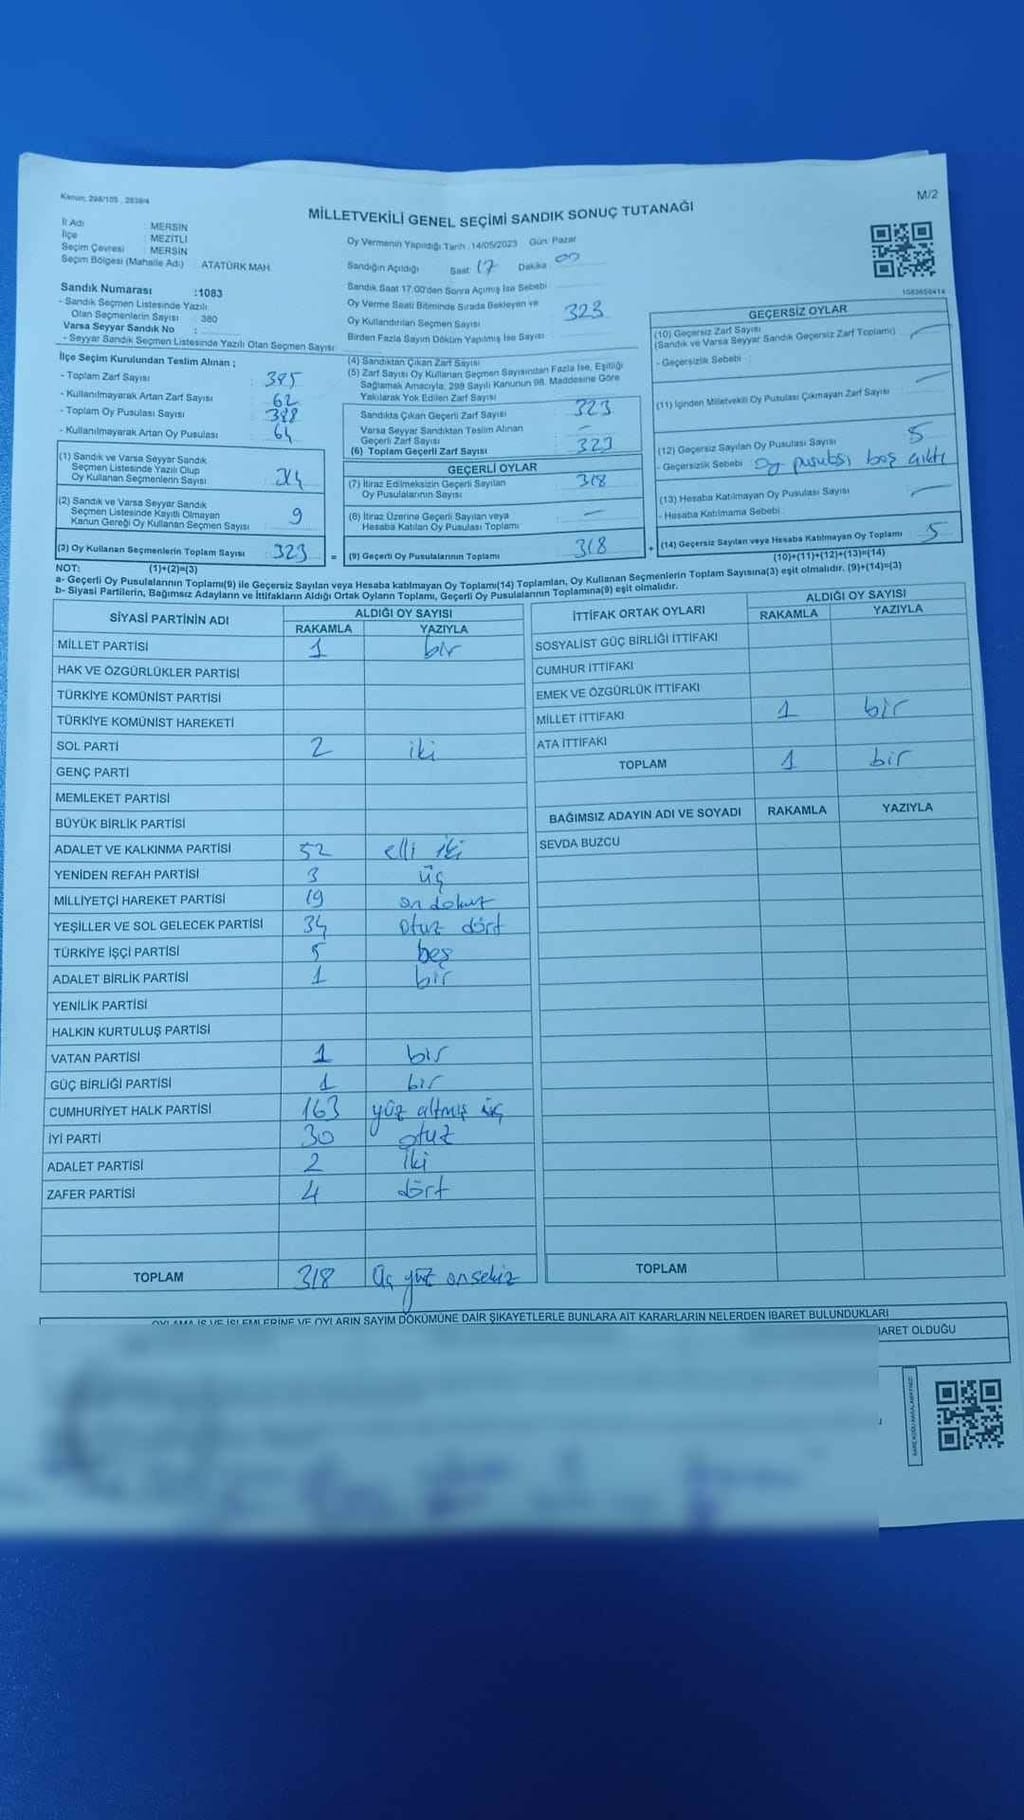 Kanun: 298/105 , 2839/4
M/2
MİLLETVEKİLİ GENEL SEÇİMİ SANDIK SONUÇ TUTANAĞI
İl Adı : MERSİN
İlçe : MEZİTLİ
Seçim Çevresi : MERSİN
Seçim Bölgesi (Mahalle Adı) : ATATÜRK MAH.
Oy Vermenin Yapıldığı Tarih : 14/05/2023 Gün: Pazar
Sandığın Açıldığı Saat 17 Dakika 00
Sandık Saat 17:00'den Sonra Açımış İse Sebebi
Oy Verme Saati Bitiminde Sırada Bekleyen ve
Oy Kullandırılan Seçmen Sayısı 323
Birden Fazla Sayım Döküm Yapılmış İse Sayısı
Sandık Numarası :1083
- Sandık Seçmen Listesinde Yazılı
Olan Seçmenlerin Sayısı : 380
Varsa Seyyar Sandık No :
- Seyyar Sandık Seçmen Listesinde Yazılı Olan Seçmen Sayısı
İlçe Seçim Kurulundan Teslim Alınan ;
- Toplam Zarf Sayısı : 385
- Kullanılmayarak Artan Zarf Sayısı : 62
- Toplam Oy Pusulası Sayısı : 388
- Kullanılmayarak Artan Oy Pusulası : 64
(1) Sandık ve Varsa Seyyar Sandık
Seçmen Listesinde Yazılı Olup
Oy Kullanan Seçmenlerin Sayısı
(2) Sandık ve Varsa Seyyar Sandık
Seçmen Listesinde Kayıtlı Olmayan
Kanun Gereği Oy Kullanan Seçmen Sayısı 9
(3) Oy Kullanan Seçmenlerin Toplam Sayısı 323 =
(1)+(2)=(3)
(4) Sandıktan Çıkan Zarf Sayısı
(5) Zarf Sayısı Oy Kullanan Seçmen Sayısından Fazla İse, Eşitliği
Sağlamak Amacıyla, 298 Sayılı Kanunun 98. Maddesine Göre
Yakılarak Yok Edilen Zarf Sayısı
Sandıkta Çıkan Geçerli Zarf Sayısı 323
Varsa Seyyar Sandıktan Teslim Alınan
Geçerli Zarf Sayısı -
(6) Toplam Geçerli Zarf Sayısı 323
GEÇERLİ OYLAR
(7) İtiraz Edilmeksizin Geçerli Sayılan
Oy Pusulalarının Sayısı 318
(8) İtiraz Üzerine Geçerli Sayılan veya
Hesaba Katılan Oy Pusulası Toplamı -
(9) Geçerli Oy Pusulalarının Toplamı 318 +
1083650414
GEÇERSİZ OYLAR
(10) Geçersiz Zarf Sayısı
(Sandık ve Varsa Seyyar Sandık Geçersiz Zarf Toplamı) -
- Geçersizlik Sebebi :
(11) İçinden Milletvekili Oy Pusulası Çıkmayan Zarf Sayısı -
(12) Geçersiz Sayılan Oy Pusulası Sayısı 5
- Geçersizlik Sebebi oy pusulası boş çıktı
(13) Hesaba Katılmayan Oy Pusulası Sayısı -
- Hesaba Katılmama Sebebi :
(14) Geçersiz Sayılan veya Hesaba Katılmayan Oy Toplamı 5
(10)+(11)+(12)+(13)=(14)
NOT:
a- Geçerli Oy Pusulalarının Toplamı(9) ile Geçersiz Sayılan veya Hesaba katılmayan Oy Toplamı(14) Toplamları, Oy Kullanan Seçmenlerin Toplam Sayısına(3) eşit olmalıdır. (9)+(14)=(3)
b- Siyasi Partilerin, Bağımsız Adayların ve İttifakların Aldığı Ortak Oyların Toplamı, Geçerli Oy Pusulalarının Toplamına(9) eşit olmalıdır.
SİYASİ PARTİNİN ADI ALDIĞI OY SAYISI
RAKAMLA YAZIYLA
MİLLET PARTİSİ 1 bir
HAK VE ÖZGÜRLÜKLER PARTİSİ
TÜRKİYE KOMÜNİST PARTİSİ
TÜRKİYE KOMÜNİST HAREKETİ
SOL PARTİ 2 iki
GENÇ PARTİ
MEMLEKET PARTİSİ
BÜYÜK BİRLİK PARTİSİ
ADALET VE KALKINMA PARTİSİ 52 elli iki
YENİDEN REFAH PARTİSİ 3 üç
MİLLİYETÇİ HAREKET PARTİSİ 19 on dokuz
YEŞİLLER VE SOL GELECEK PARTİSİ 34 otuz dört
TÜRKİYE İŞÇİ PARTİSİ 5 beş
ADALET BİRLİK PARTİSİ 1 bir
YENİLİK PARTİSİ
HALKIN KURTULUŞ PARTİSİ
VATAN PARTİSİ 1 bir
GÜÇ BİRLİĞİ PARTİSİ 1 bir
CUMHURİYET HALK PARTİSİ 163 yüz altmış üç
İYİ PARTİ 30 otuz
ADALET PARTİSİ 2 iki
ZAFER PARTİSİ 4 dört
TOPLAM 318 üç yüz onsekiz
İTTİFAK ORTAK OYLARI ALDIĞI OY SAYISI
RAKAMLA YAZIYLA
SOSYALİST GÜÇ BİRLİĞİ İTTİFAKI
CUMHUR İTTİFAKI
EMEK VE ÖZGÜRLÜK İTTİFAKI
MİLLET İTTİFAKI 1 bir
ATA İTTİFAKI
TOPLAM 1 bir
BAĞIMSIZ ADAYIN ADI VE SOYADI RAKAMLA YAZIYLA
SEVDA BUZCU
TOPLAM
OYLAMA İŞ VE İŞLEMLERİNE VE OYLARIN SAYIM DÖKÜMÜNE DAİR ŞİKAYETLERLE BUNLARA AİT KARARLARIN NELERDEN İBARET BULUNDUKLARI
İBARET OLDUĞU